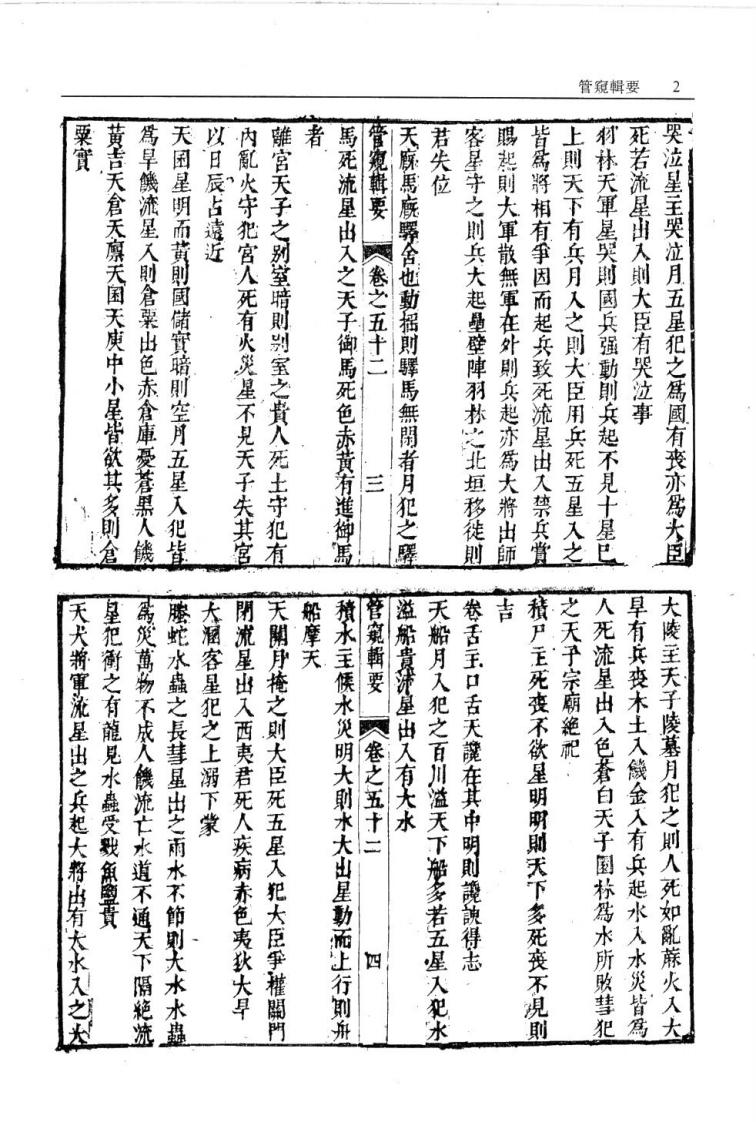 管窺輯要 2
哭泣星主哭泣月五星犯之爲國有喪亦爲大臣
死若流星出入則大臣有哭泣事
羽林天軍星衆則國兵强動則兵起不見十星已
上則天下有兵月入之則大臣用兵死五星入之
皆爲將相有爭因而起兵致死流星出入禁兵賞
賜起則大軍散無軍在外則兵起亦爲大將出師
客星守之則兵大起壘壁陣羽林之北垣移徙則
君失位
天廐馬廐驛舍也動摇則驛馬無閑者月犯之驛
管窺輯要 卷之五十二 三
馬死流星出入之天子御馬死色赤黃有進御馬
者
離宮天子之别室暗則别室之貴人死土守犯有
內亂火守犯宮人死有火災星不見天子失其宮
以日辰占遠近
天囷星明而黃則國儲實暗則空月五星入犯皆
爲旱饑流星入則倉粟出色赤倉庫憂蒼黑人饑
黃吉天倉天廩天囷天庾中小星皆欲其多則倉
粟實
大陵主天子陵墓月犯之則人死如亂蔴火入大
旱有兵喪木土入饑金入有兵起水入水災皆爲
人死流星出入色蒼白天子園林爲水所敗彗犯
之天子宗廟絶祀
積尸主死喪不欲星明明則天下多死喪不見則
吉
卷舌主口舌天讒在其中明則讒諛得志
天船月入犯之百川溢天下船多若五星入犯水
溢船貴流星出入有大水
管窺輯要 卷之五十二 四
積水主候水災明大則水大出星動而上行則舟
船摩天
天關月掩之則大臣死五星入犯大臣爭權關門
閉流星出入西夷君死人疾病赤色夷狄大旱
天溷客星犯之上溺下蒙
螣蛇水蟲之長彗星出之雨水不節則大水水蟲
爲災萬物不成人饑流亡水道不通天下隔絶流
星犯衝之有龍見水蟲受戮魚鹽貴
天大將軍流星出之兵起大將出有大水入之大